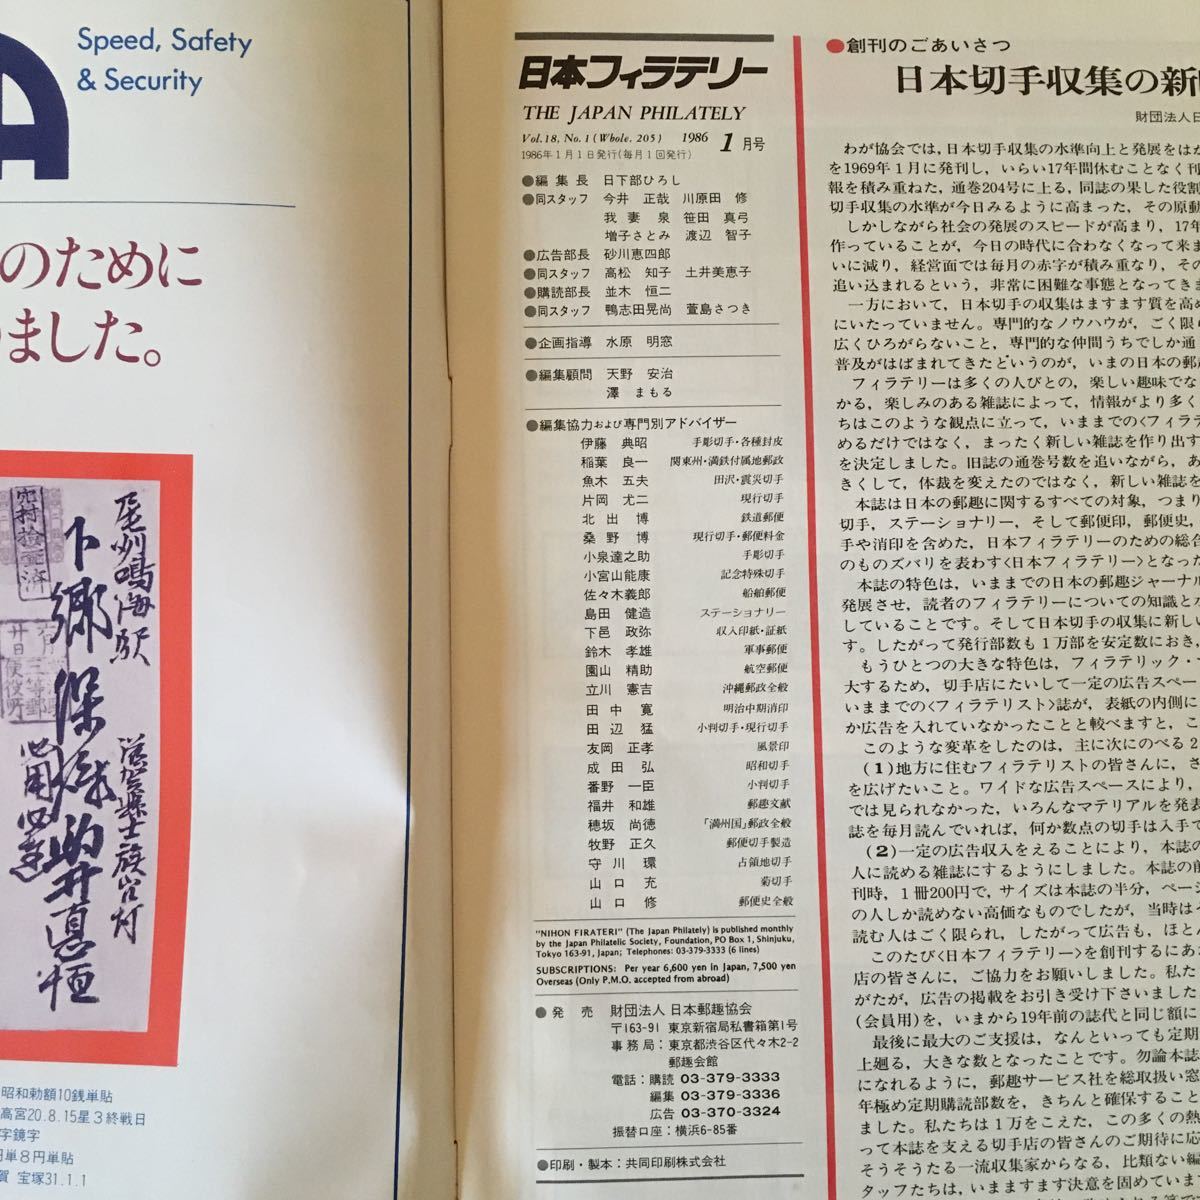 Speed, Safety
& Security
のために
ました。
昭和勅額10銭単貼
高宮20.8.15星3終戦日
字鏡字
円単8円単貼
賀 宝塚31.1.1
日本フィラテリー
THE JAPAN PHILATELY
Vol.18, No.1 (Whole. 205) 1986 1月号
1986年1月1日発行(毎月1回発行)
●編集長 日下部ひろし
●同スタッフ 今井 正哉 川原田 修
我妻 泉 笹田 真弓
増子さとみ 渡辺 智子
●広告部長 砂川恵四郎
●同スタッフ 高松 知子 土井美恵子
●購読部長 並木 恒二
●同スタッフ 鴨志田晃尚 萱島さつき
●企画指導 水原 明窓
●編集顧問 天野 安治
澤 まもる
●編集協力および専門別アドバイザー
伊藤 典昭 手彫切手・各種封皮
稲葉 良一 関東州・満鉄付属地郵政
魚木 五夫 田沢・震災切手
片岡 尤二 現行切手
北出 博 鉄道郵便
桑野 博 現行切手・郵便料金
小泉達之助 手彫切手
小宮山能康 記念特殊切手
佐々木義郎 船舶郵便
島田 健造 ステーショナリー
下邑 政弥 収入印紙・証紙
鈴木 孝雄 軍事郵便
園山 精助 航空郵便
立川 憲吉 沖縄郵政全般
田中 寛 明治中期消印
田辺 猛 小判切手・現行切手
友岡 正孝 風景印
成田 弘 昭和切手
番野 一臣 小判切手
福井 和雄 郵趣文献
穂坂 尚徳 「満州国」郵政全般
牧野 正久 郵便切手製造
守川 環 占領地切手
山口 充 菊切手
山口 修 郵便史全般
"NIHON FIRATERI" (The Japan Philately) is published monthly
by the Japan Philatelic Society, Foundation, PO Box 1, Shinjuku,
Tokyo 163-91, Japan; Telephones: 03-379-3333 (6 lines)
SUBSCRIPTIONS: Per year 6,600 yen in Japan, 7,500 yen
Overseas (Only P.M.O. accepted from abroad)
●発売 財団法人 日本郵趣協会
〒163-91 東京新宿局私書箱第1号
事務局:東京都渋谷区代々木2-2
郵趣会館
電話:購読 03-379-3333
編集 03-379-3336
広告 03-370-3324
振替口座:横浜6-85番
●印刷・製本:共同印刷株式会社
●創刊のごあいさつ
日本切手収集の新
財団法人日
わが協会では,日本切手収集の水準向上と発展をはか
を1969年1月に発刊し,いらい17年間休むことなく刊
報を積み重ねた,通巻204号に上る,同誌の果した役割
切手収集の水準が今日みるように高まった,その原動
しかしながら社会の発展のスピードが高まり,17年
作っていることが,今日の時代に合わなくなって来ま
いに減り,経営面では毎月の赤字が積み重なり,その
追い込まれるという,非常に困難な事態となってきま
一方において,日本切手の収集はますます質を高め
にいたっていません。専門的なノウハウが,ごく限ら
広くひろがらないこと,専門的な仲間うちでしか通
普及がはばまれてきたというのが,いまの日本の郵趣
フィラテリーは多くの人びとの,楽しい趣味でな
かる,楽しみのある雑誌によって,情報がより多く
ちはこのような観点に立って,いままでの〈フィラテ
めるだけではなく,まったく新しい雑誌を作り出す
を決定しました。旧誌の通巻号数を追いながら,あ
きくして,体裁を変えたのではなく,新しい雑誌を
本誌は日本の郵趣に関するすべての対象,つまり
切手,ステーショナリー,そして郵便印,郵便史,
手や消印を含めた,日本フィラテリーのための総合
のものズバリを表わす〈日本フィラテリー〉となった
本誌の特色は,いままでの日本の郵趣ジャーナル
発展させ,読者のフィラテリーについての知識とな
していることです。そして日本切手の収集に新しい
す。したがって発行部数も1万部を安定数におき,
もうひとつの大きな特色は,フィラテリック・
大するため,切手店にたいして一定の広告スペー
いままでの〈フィラテリスト〉誌が,表紙の内側に
か広告を入れていなかったことと較べますと,こ
このような変革をしたのは,主に次にのべる2
(1)地方に住むフィラテリストの皆さんに,さ
を広げたいこと。ワイドな広告スペースにより,
では見られなかった,いろんなマテリアルを発表
誌を毎月読んでいれば,何か数点の切手は入手で
(2)一定の広告収入をえることにより,本誌の
人に読める雑誌にするようにしました。本誌の前
刊時,1冊200円で,サイズは本誌の半分,ページ
の人しか読めない高価なものでしたが,当時はそ
読む人はごく限られ,したがって広告も,ほとん
このたび〈日本フィラテリー〉を創刊するにあた
店の皆さんに,ご協力をお願いしました。私た
がたが,広告の掲載をお引き受け下さいました
(会員用)を,いまから19年前の誌代と同じ額に
最後に最大のご支援は,なんといっても定期
上廻る,大きな数となったことです。勿論本誌
になれるように,郵趣サービス社を総取扱い窓
年極め定期購読部数を,きちんと確保すること
ました。私たちは1万をこえた,この多くの熱
って本誌を支える切手店の皆さんのご期待に応
そうそうたる一流収集家からなる,比類ない編
タッフたちは,いまますます決意を固めていま